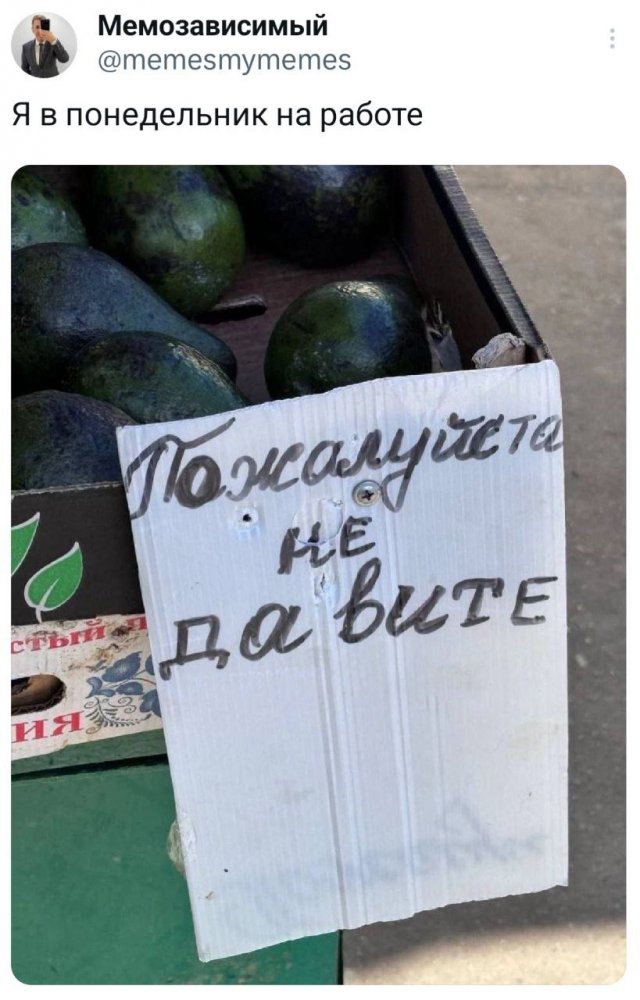 Мемозависимый
@memesmymemes
Я в понедельник на работе
Пожалуйста
не
давите
ия